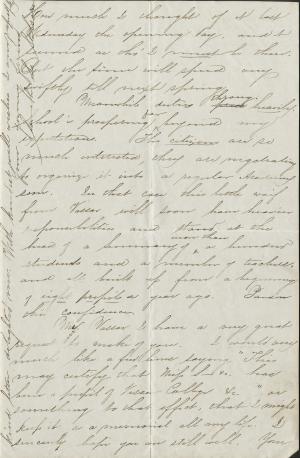 How much I thought of it last
Wednesday the opening day, and it
seemed as tho' I must be there.
But the time will speed away
swiftly till next spring.
Meanwhile duties throng heavily
School is prospering far beyond my
expectations. The citizens are so
much interested they are negotiating
to organize it into a regular Academy
soon. In that case this little waif
from Vassar will soon have heavier
responsibilities and stand at the
head of a Seminary of more than a hundred
students and a number of teachers.
and all built up from a beginning
of eight pupils a year ago. Pardon
this confidence.
Miss Vassar I have a very great
request to make of you. I would ever
much like a few lines saying "This
may certify that Miss &c has
been a pupil of Vassar College &c." or
something to that effect, that I might
keep it as a memorial all my life. I
sincerely hope you are still well. Your